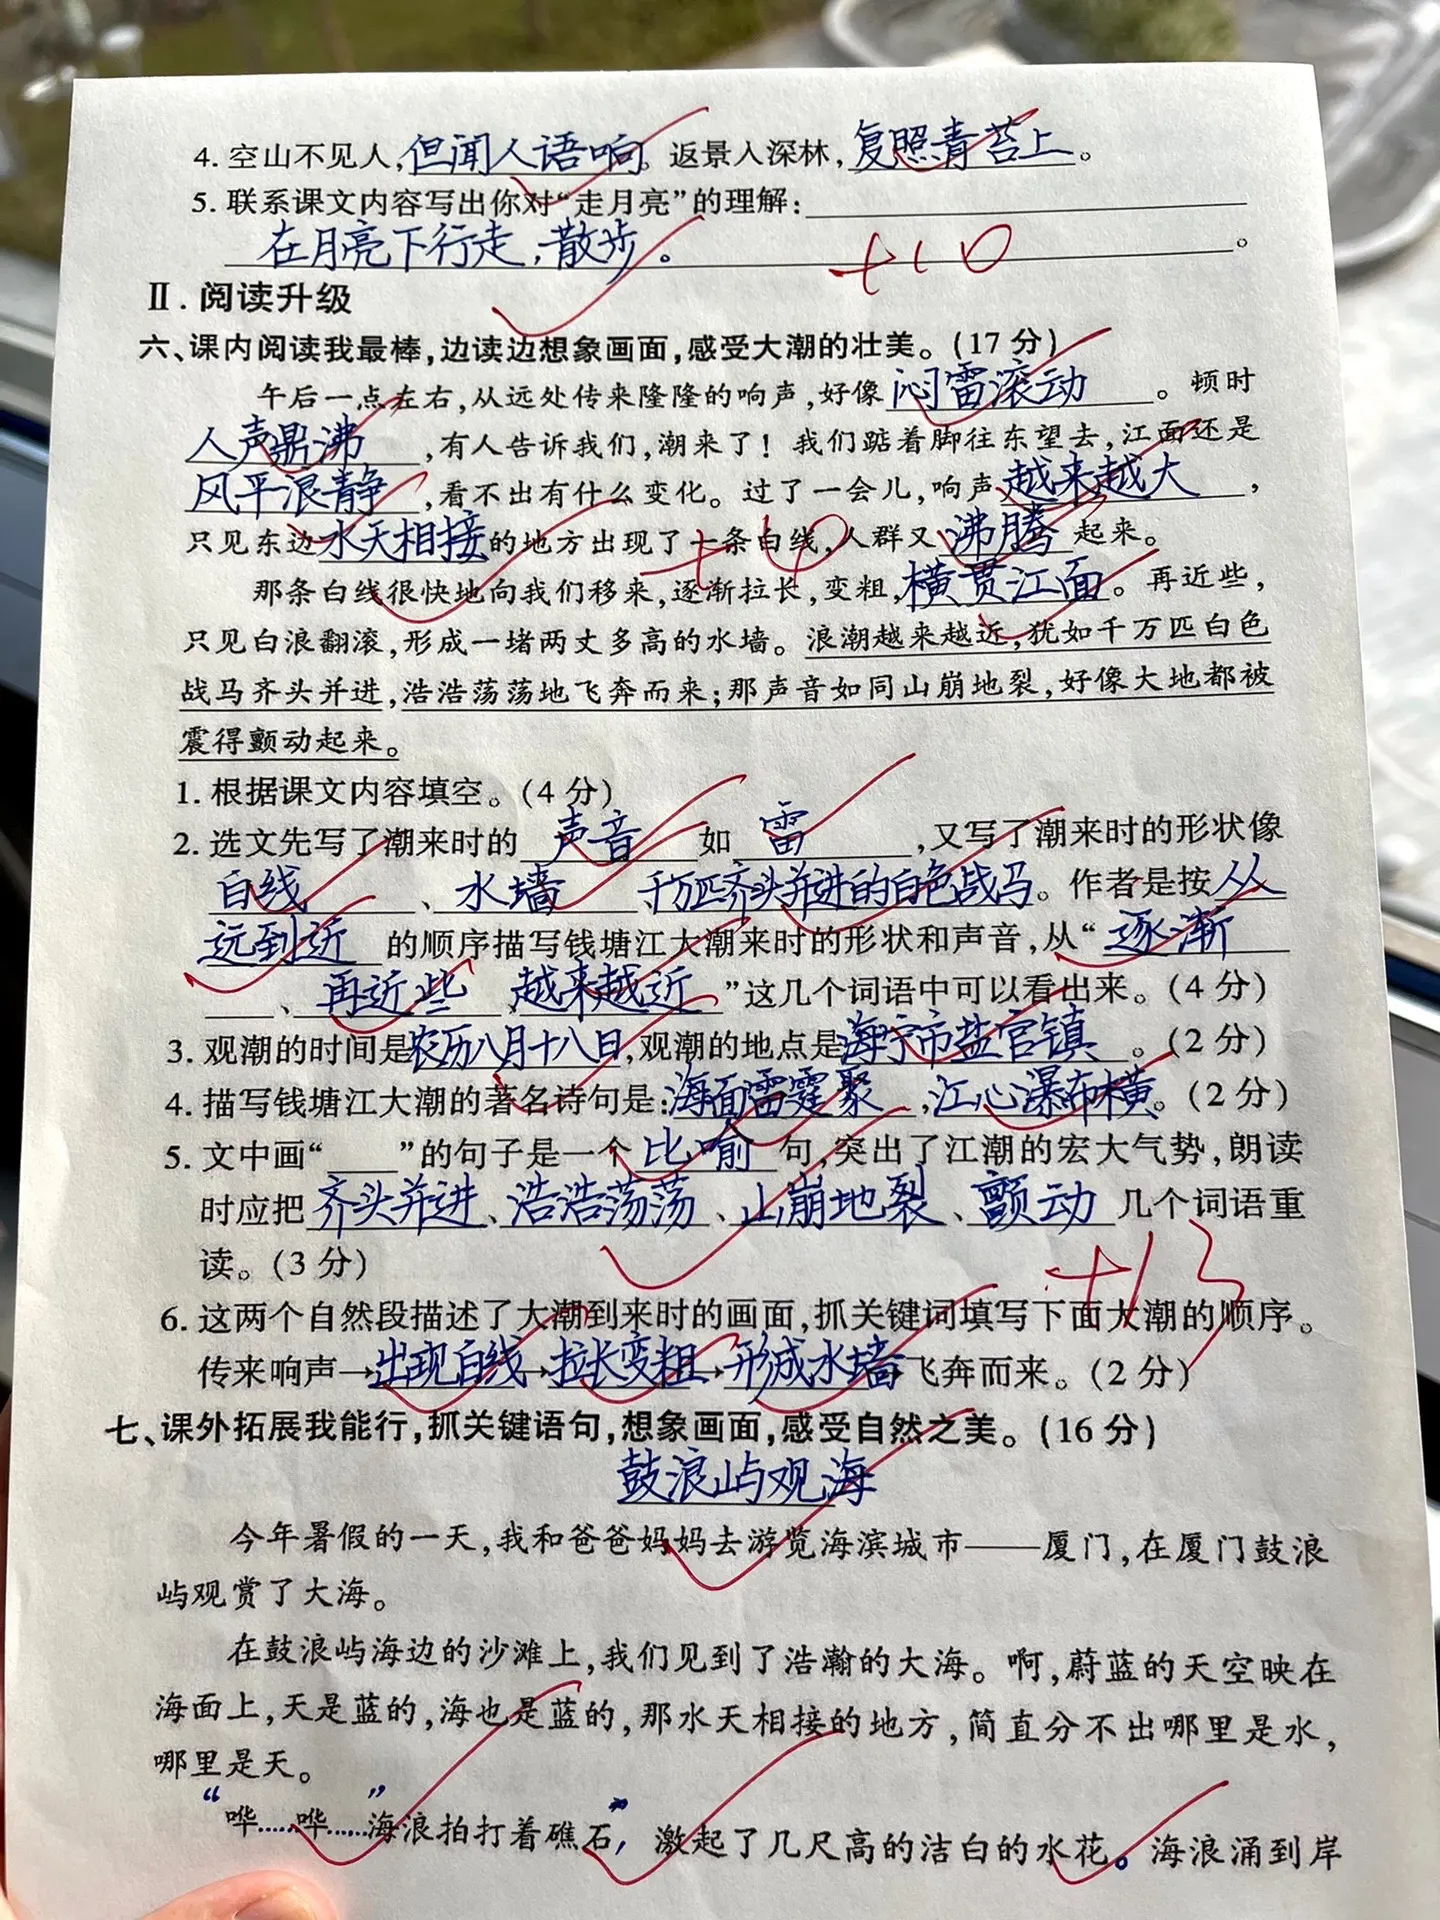 4. 空山不见人,但闻人语响。返景入深林,复照青苔上。
5. 联系课文内容写出你对“走月亮”的理解:
在月亮下行走,散步。 。
+10
Ⅱ. 阅读升级
六、课内阅读我最棒,边读边想象画面,感受大潮的壮美。(17分)
午后一点左右,从远处传来隆隆的响声,好像闷雷滚动。顿时
人声鼎沸,有人告诉我们,潮来了!我们踮着脚往东望去,江面还是
风平浪静,看不出有什么变化。过了一会儿,响声越来越大,
只见东边水天相接的地方出现了一条白线,人群又沸腾起来。
+4
那条白线很快地向我们移来,逐渐拉长,变粗,横贯江面。再近些,
只见白浪翻滚,形成一堵两丈多高的水墙。浪潮越来越近,犹如千万匹白色
战马齐头并进,浩浩荡荡地飞奔而来;那声音如同山崩地裂,好像大地都被
震得颤动起来。
1. 根据课文内容填空。(4分)
2. 选文先写了潮来时的声音如雷,又写了潮来时的形状像
白线、水墙、千万匹齐头并进的白色战马。作者是按从
远到近的顺序描写钱塘江大潮来时的形状和声音,从“逐渐
、再近些、越来越近”这几个词语中可以看出来。(4分)
3. 观潮的时间是农历八月十八日,观潮的地点是海宁市盐官镇。(2分)
4. 描写钱塘江大潮的著名诗句是:海面雷霆聚,江心瀑布横。(2分)
5. 文中画“____”的句子是一个比喻句,突出了江潮的宏大气势,朗读
时应把齐头并进、浩浩荡荡、山崩地裂、颤动几个词语重
读。(3分)
+13
6. 这两个自然段描述了大潮到来时的画面,抓关键词填写下面大潮的顺序。
传来响声→出现白线→拉长变粗→形成水墙→飞奔而来。(2分)
七、课外拓展我能行,抓关键语句,想象画面,感受自然之美。(16分)
鼓浪屿观海
今年暑假的一天,我和爸爸妈妈去游览海滨城市——厦门,在厦门鼓浪
屿观赏了大海。
在鼓浪屿海边的沙滩上,我们见到了浩瀚的大海。啊,蔚蓝的天空映在
海面上,天是蓝的,海也是蓝的,那水天相接的地方,简直分不出哪里是水,
哪里是天。
“哗……哗……”海浪拍打着礁石,激起了几尺高的洁白的水花。海浪涌到岸